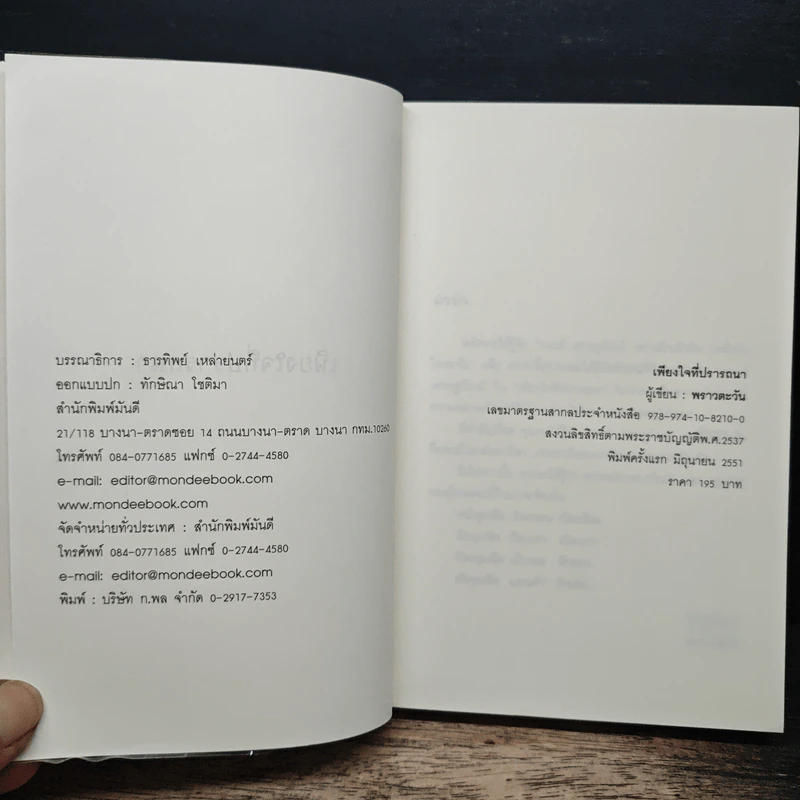 บรรณาธิการ : ธารทิพย์ เหล่ายนตร์
ออกแบบปก : ทักษิณา โชติมา
สำนักพิมพ์มันดี
21/118 บางนา-ตราดซอย 14 ถนนบางนา-ตราด บางนา กทม.10260
โทรศัพท์ 084-0771685 แฟกซ์ 0-2744-4580
e-mail: editor@mondeebook.com
www.mondeebook.com
จัดจำหน่ายทั่วประเทศ : สำนักพิมพ์มันดี
โทรศัพท์ 084-0771685 แฟกซ์ 0-2744-4580
e-mail: editor@mondeebook.com
พิมพ์ : บริษัท ก.พล จำกัด 0-2917-7353
เพียงใจที่ปรารถนา
ผู้เขียน : พราวตะวัน
เลขมาตรฐานสากลประจำหนังสือ 978-974-10-8210-0
สงวนลิขสิทธิ์ตามพระราชบัญญัติพ.ศ.2537
พิมพ์ครั้งแรก มิถุนายน 2551
ราคา 195 บาท